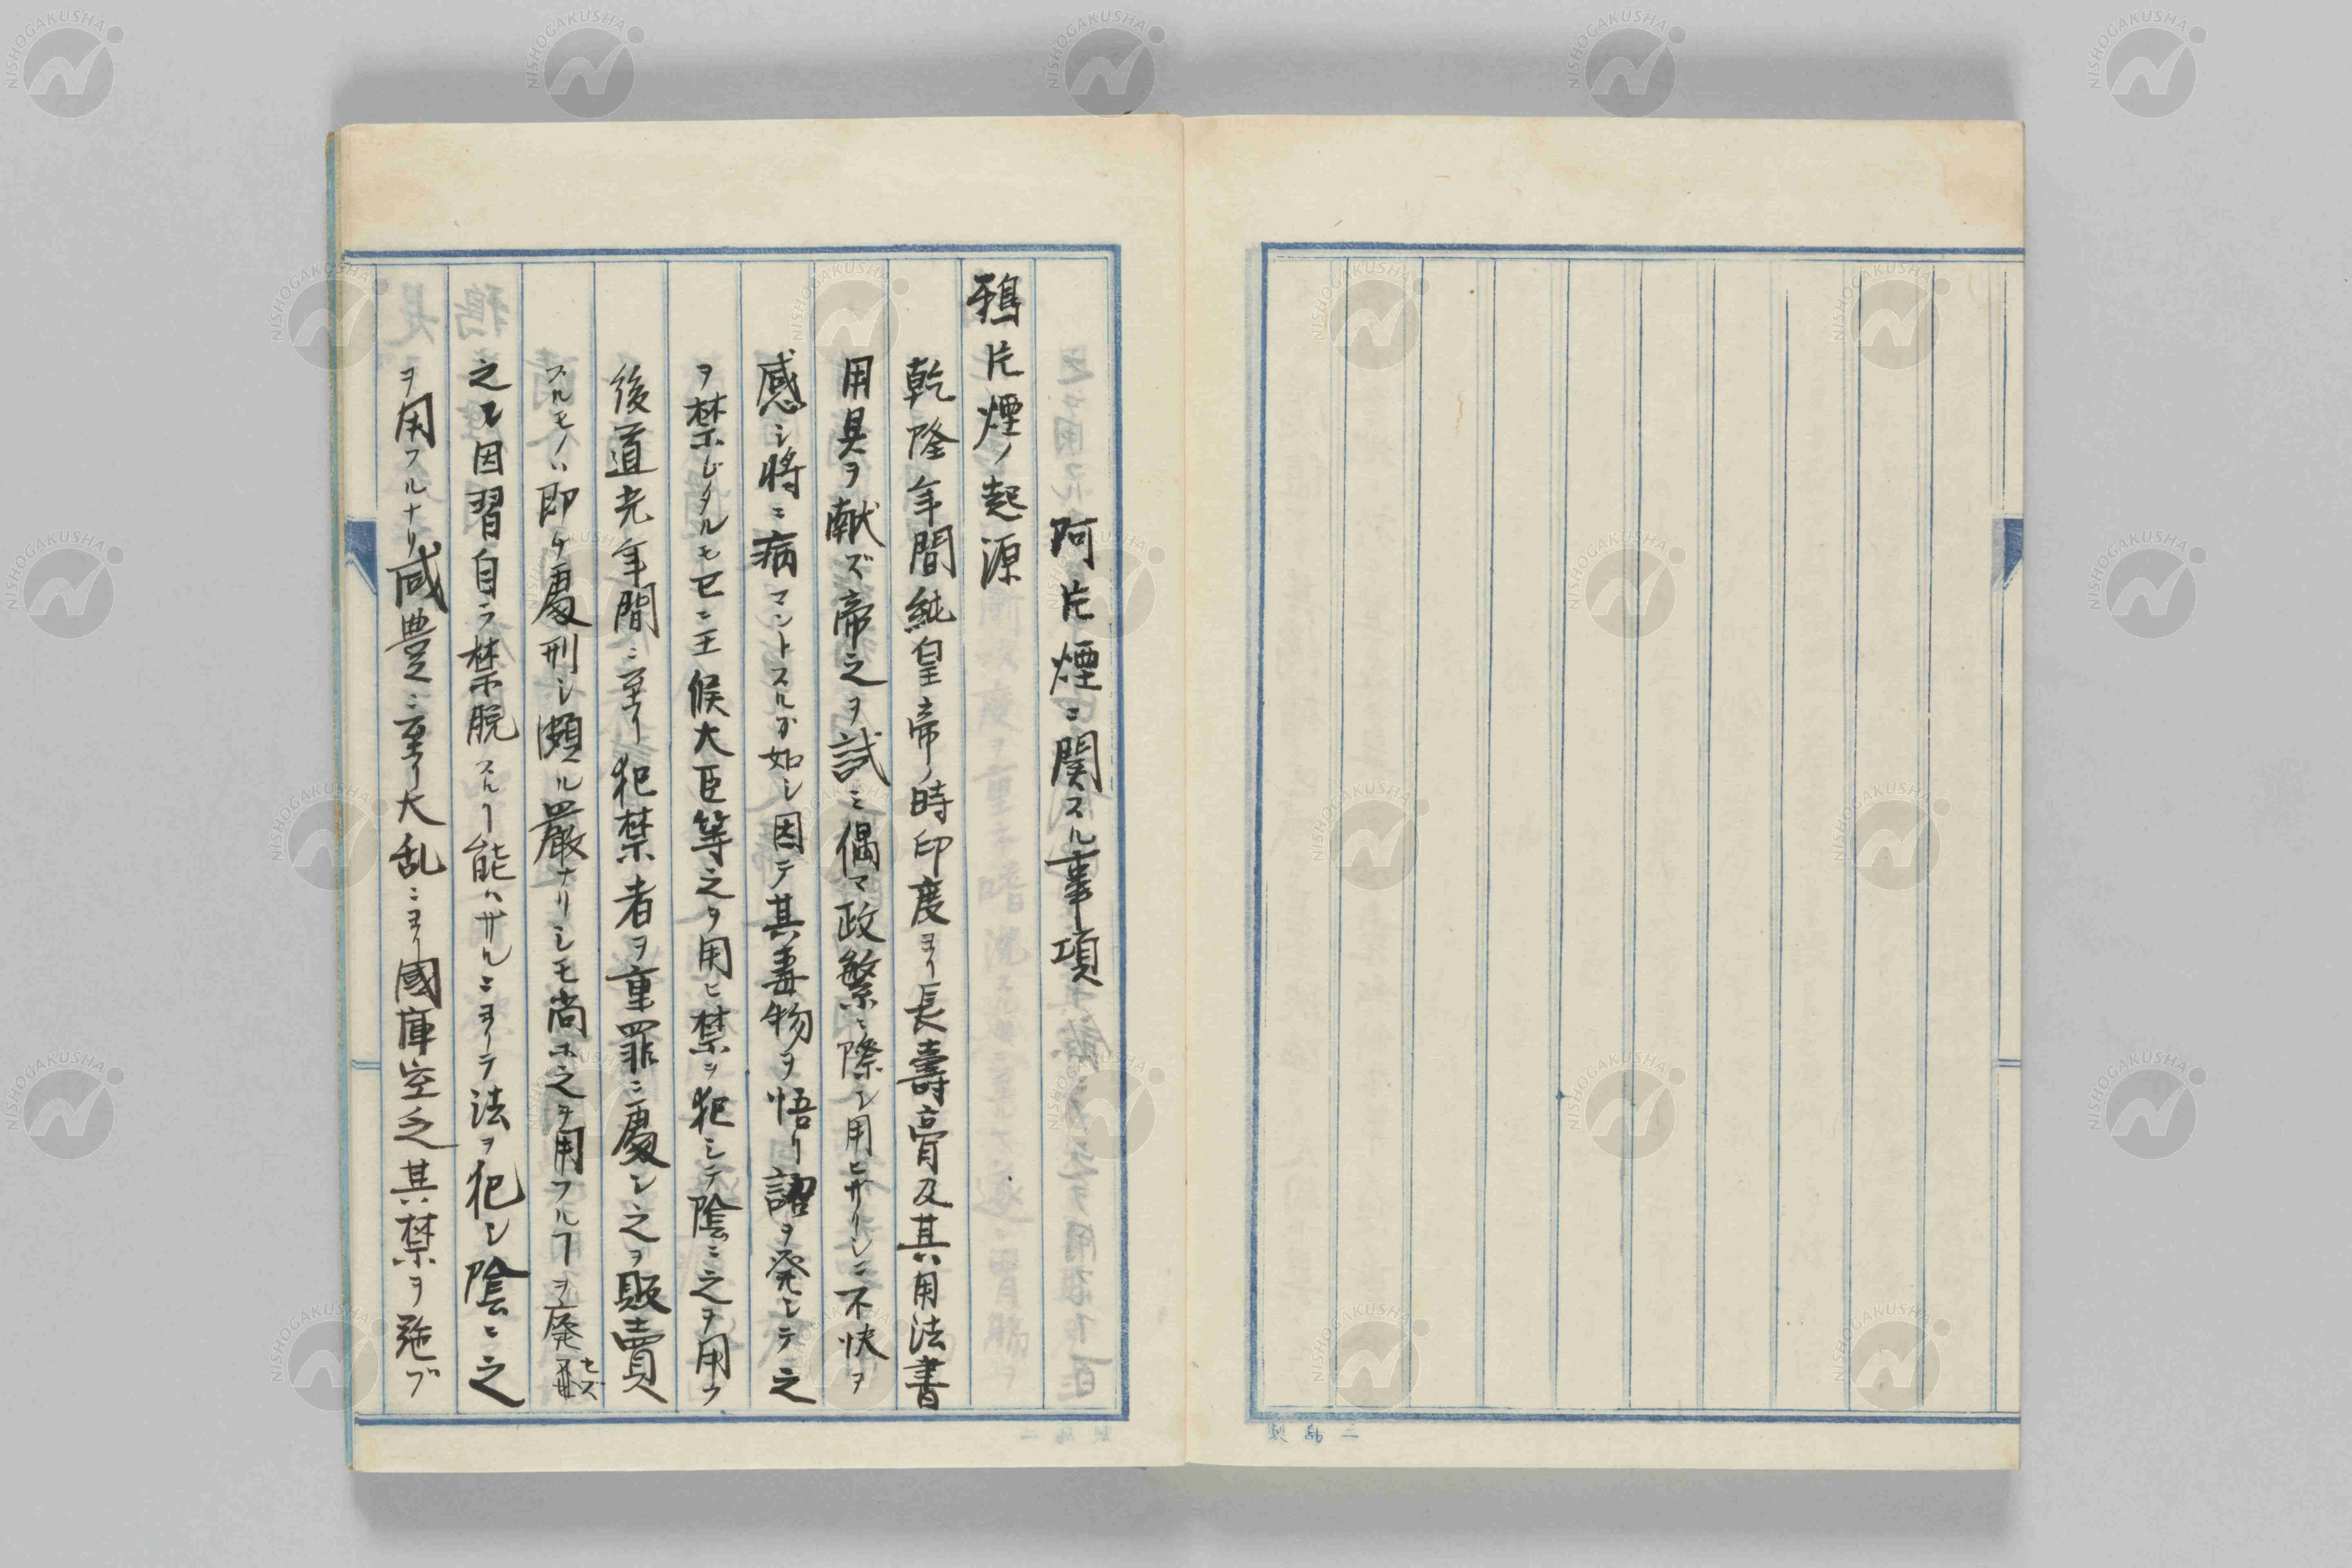 阿片煙ニ関スル事項
鴉片煙ノ起源
乾隆年間純皇帝ノ時印度ヨリ長壽膏及其用法書
用具ヲ献ズ帝之ヲ試ミ偶マ政繁ニ際シ用ヒザリシニ不快ヲ
感シ将ニ病マントスルガ如シ因テ其毒物ヲ悟リ詔ヲ発シテ之
ヲ禁じタルモ已ニ王候大臣等之ヲ用ヒ禁ヲ犯シテ陰ニ之ヲ用フ
後道光年間ニ至リ犯禁者ヲ重罪ニ處シ之ヲ販賣
スルモノハ即ケ處刑シ頗ル嚴ナリシモ尚ホ之ヲ用フルヿヲ廃セズ
之レ因習自ラ禁脱スルヿ能ハザルニヨリテ法ヲ犯シ陰ニ之
ヲ用フルナリ咸豊ニ至リ大乱ニヨリ國庫空乏其禁ヲ弛ブ
二 島 製
NISHOGAKUSHA